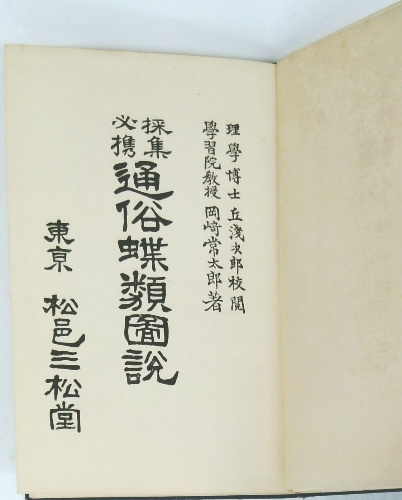 理學博士 丘淺次郎校閲
學習院教授 岡﨑常太郎著
採集
必携
通俗蝶類圖說
東京 松邑三松堂